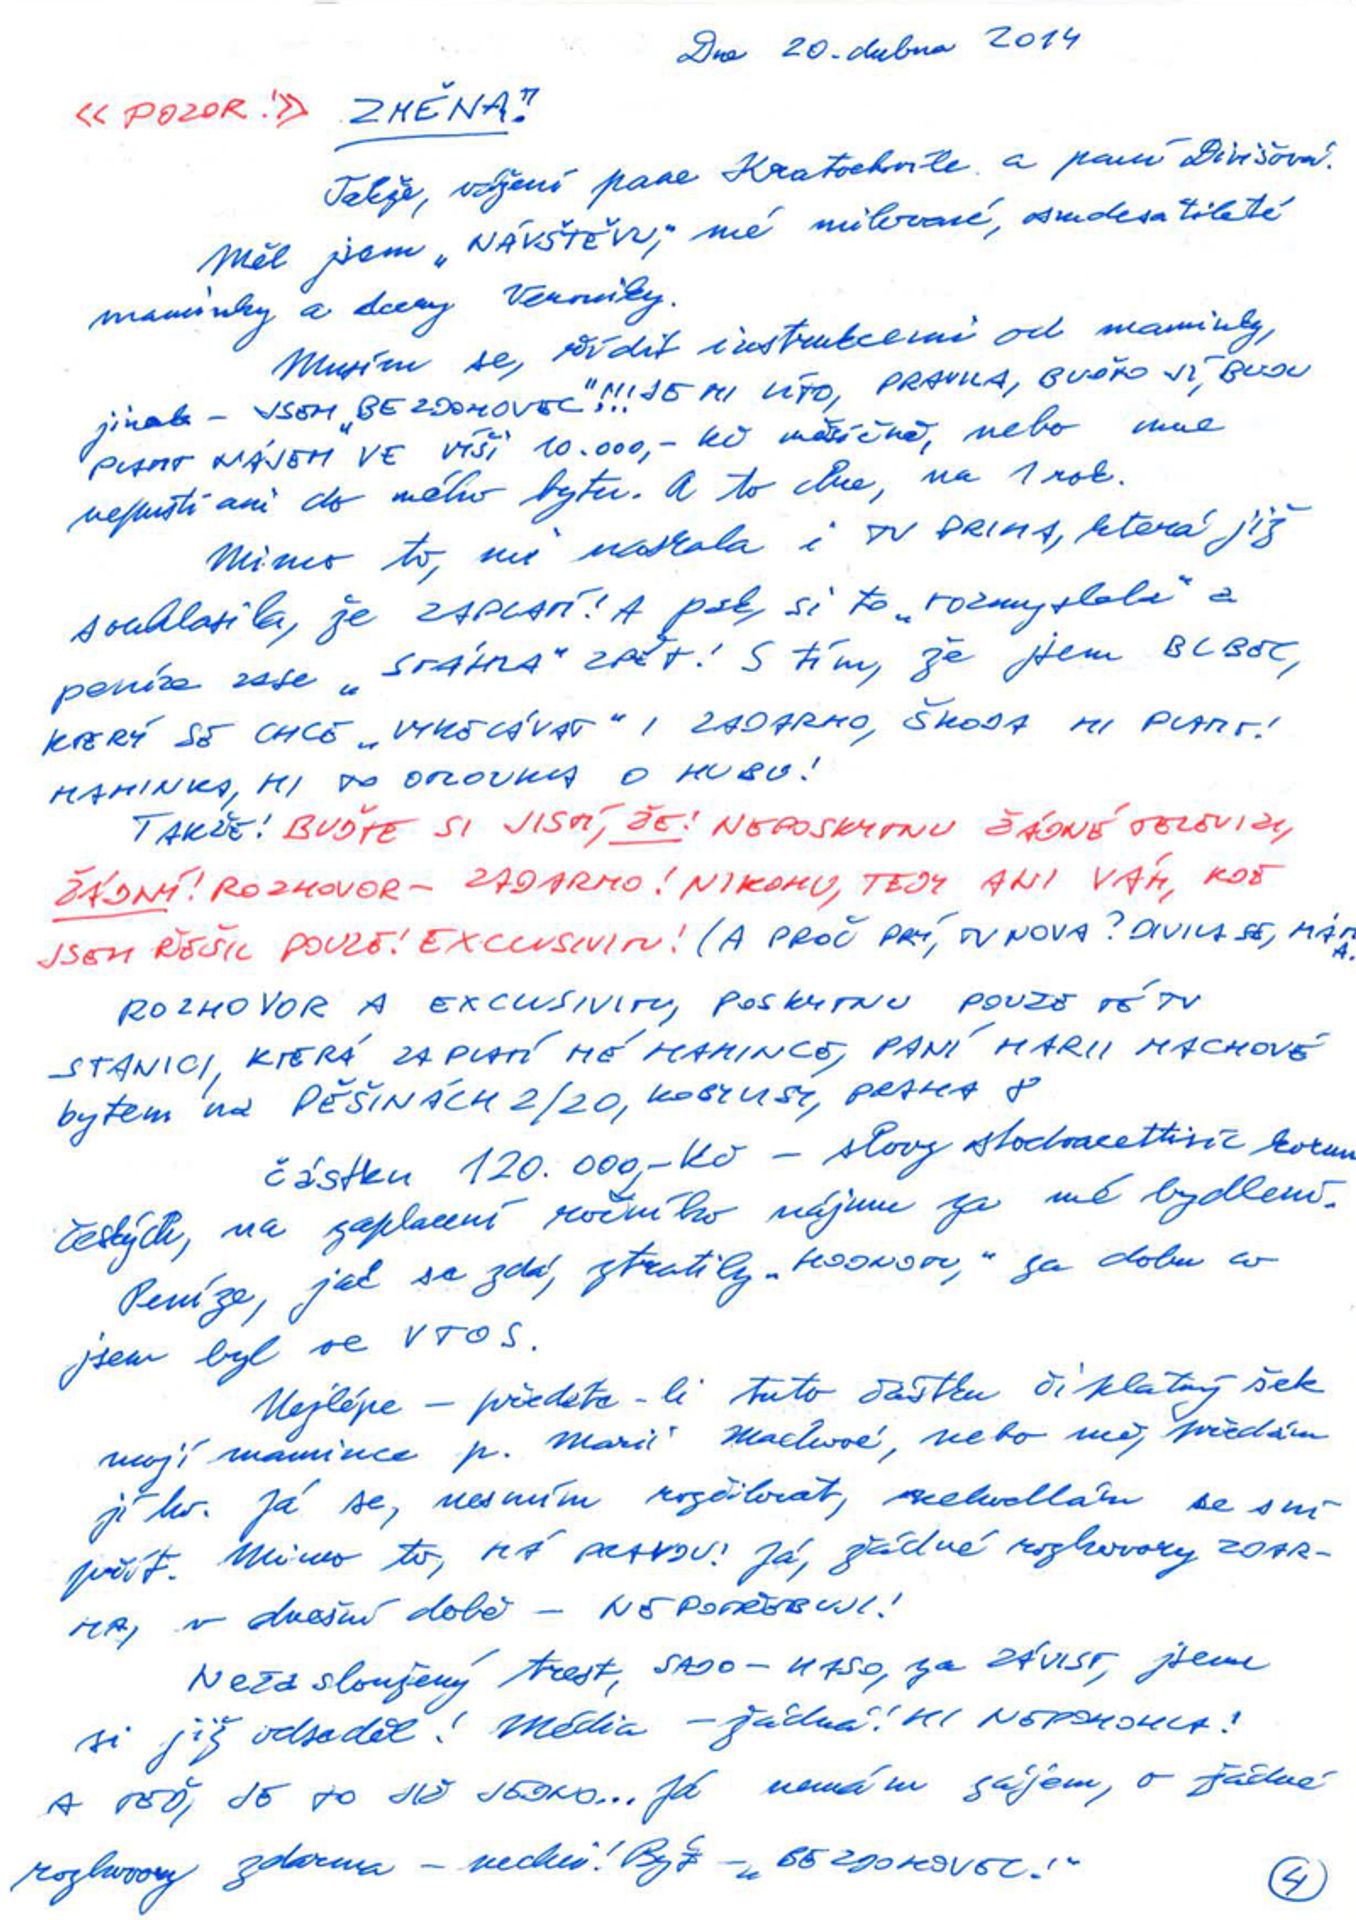 Dne 20. dubna 2014
<< POZOR! >> ZMĚNA!!
Takže, vážení pane Kratochvíle a paní Divišová.
Měl jsem „NÁVŠTĚVU," mé milované, osmdesátileté
maminky a dcery Veroniky.
Musím se, řídit instrukcemi od maminky,
jinak - JSEM „BEZDOMOVEC"!!! JE MI LÍTO, PRAVILA, BUĎTO JÍ, BUDU
PLATIT NÁJEM VE VÍŠI 10.000,- Kč měsíčně, nebo mne
nepustí ani do mého bytu. A to chce, na 1 rok.
Mimo to, mě nasrala i TV PRIMA, která již
souhlasila, že ZAPLATÍ! A pak, si to „rozmyslela" a
peníze zase „STÁHLA" ZPĚT! S tím, že jsem BLBEC,
KTERÝ SE CHCE „VYKECÁVAT" I ZADARMO, ŠKODA MI PLATIT!
MAMINKA, MI TO OTLOUKLA O HUBU!
TAKŽE! BUĎTE SI JISTÍ, ŽE! NEPOSKYTNU ŽÁDNÉ TELEVIZI,
ŽÁDNÝ! ROZHOVOR - ZADARMO! NIKOMU, TEDY ANI VÁM, KDE
JSEM ŘEŠIL POUZE! EXCLUSIVITU! (A PROČ PRÝ, TV NOVA? DIVILA SE, MÁM
A.
ROZHOVOR A EXCLUSIVITU, POSKYTNU POUZE TÉ TV
STANICI, KTERÁ ZAPLATÍ MÉ MAMINCE, PANÍ MARII MACHOVÉ
bytem na PĚŠINÁCH 2/20, KOBYLISY, PRAHA 8
částku 120.000,- Kč - slovy stodvacettisíc korun
českých, na zaplacení ročního nájmu za mé bydlení.
Peníze, jak se zdá, ztratily „HODNOTU," za dobu co
jsem byl ve VTOS.
Nejlépe - předáte-li tuto částku či platný šek
mojí mamince p. Marii Machové, nebo mě, předám
jí ho. Já se, nesmím rozčilovat, nehodlám se s ní
přít. Mimo to, MÁ PRAVDU! Já, žádné rozhovory ZDAR-
MA, v dnešní době - NEPOTŘEBUJI!
Nezasloužený trest, SADO-MASO, za ZÁVIST, jsem
si již odseděl! Média - žádná! MI NEPOMOHLA!
A TEĎ, JE TO JIŽ JEDNO... Já nemám zájem, o žádné
rozhovory zdarma - nechci! Být - „BEZDOMOVEC!"
4